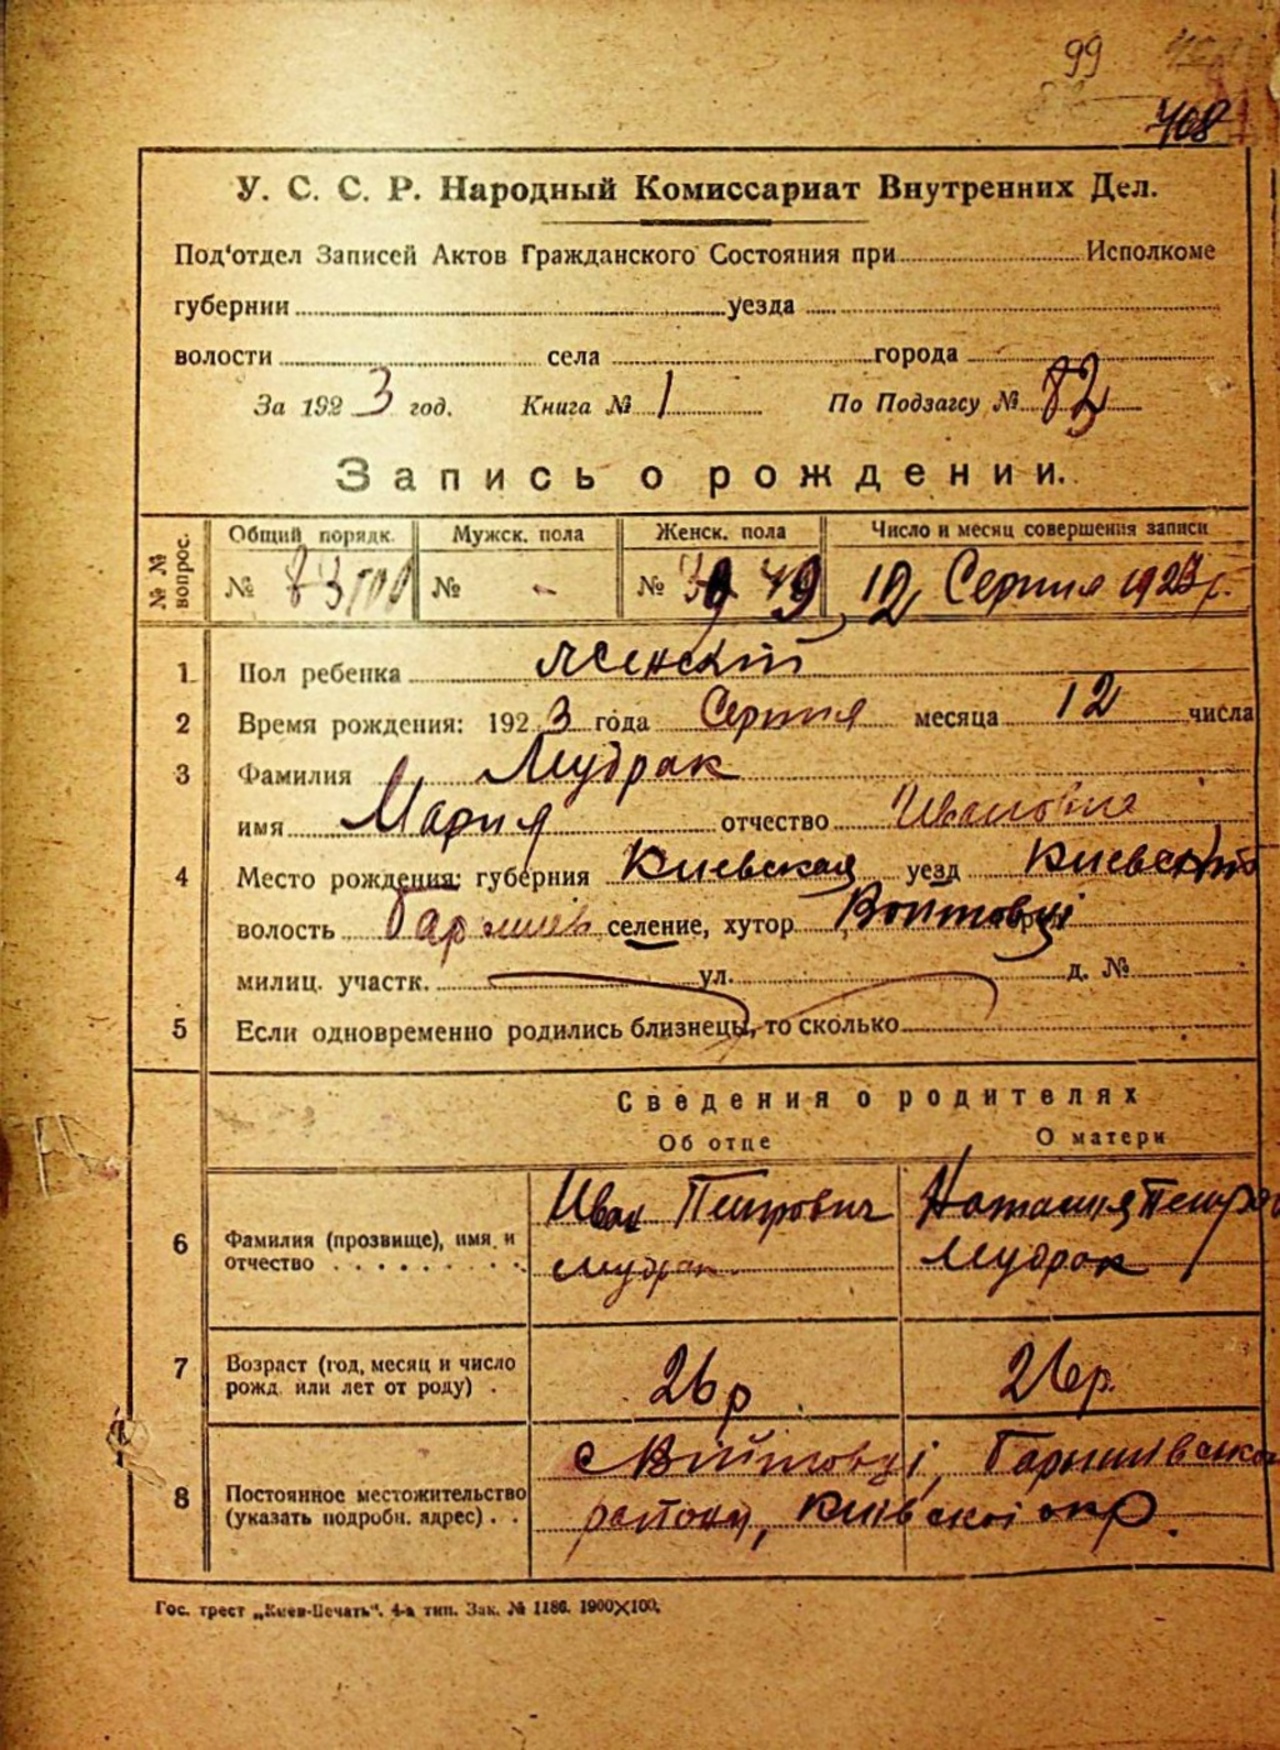 99
408
У. С. С. Р. Народный Комиссариат Внутренних Дел.
Под‘отдел Записей Актов Гражданского Состояния при Исполкоме
губернии уезда
волости села города
За 1923 год. Книга № 1 По Подзагсу № 82
Запись о рождении.
№№ вопрос. Общий порядк. Мужск. пола Женск. пола Число и месяц совершения записи
№ № - № 49 12 Серпня 1923 г.
1 Пол ребенка женский
2 Время рождения: 1923 года Серпня месяца 12 числа
3 Фамилия Мудрак
имя Мария отчество Ивановна
4 Место рождения: губерния Киевская уезд Киевский
волость селение, хутор Войтовці
милиц. участк. ул. д. №
5 Если одновременно родились близнецы, то сколько
Сведения о родителях
Об отце О матери
6 Фамилия (прозвище), имя и отчество Иван Петрович Мудрак Наталия Петро Мудрак
7 Возраст (год, месяц и число рожд. или лет от роду) 26 р 26 р.
8 Постоянное местожительство (указать подробн. адрес) с Війтовці, Баришівської
району, Київської окр.
Гос. трест „Киев-Печать“. 4-а тип. Зак. № 1186. 1900×100.